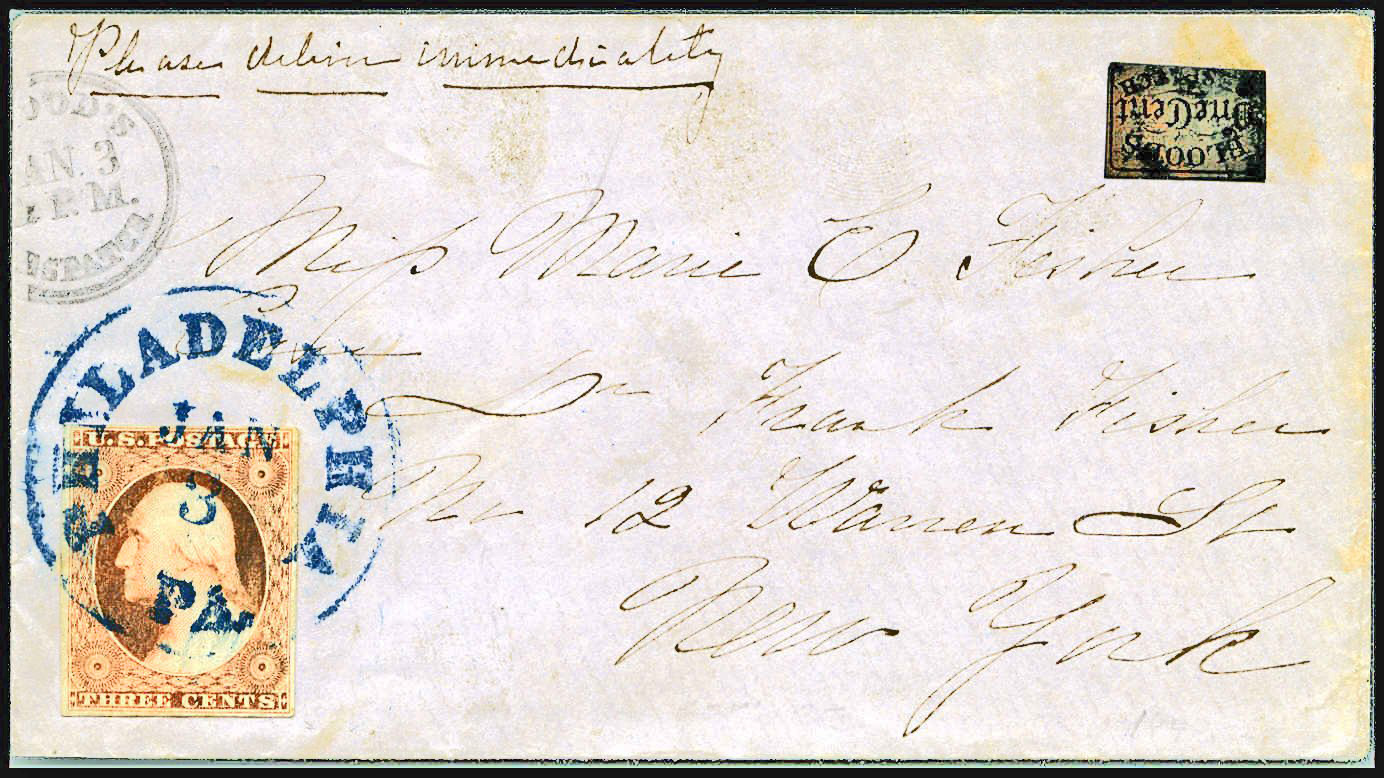 Please deliver immediately
OOD'S
AN. 3
P.M.
DESPATCH
One Cent
BLOOD'S
Miss Marie C Fisher
Care
Dr Frank Fisher
No 12 Warren St
New York
PHILADELPHIA
JAN
3
PA
U.S. POSTAGE
THREE CENTS